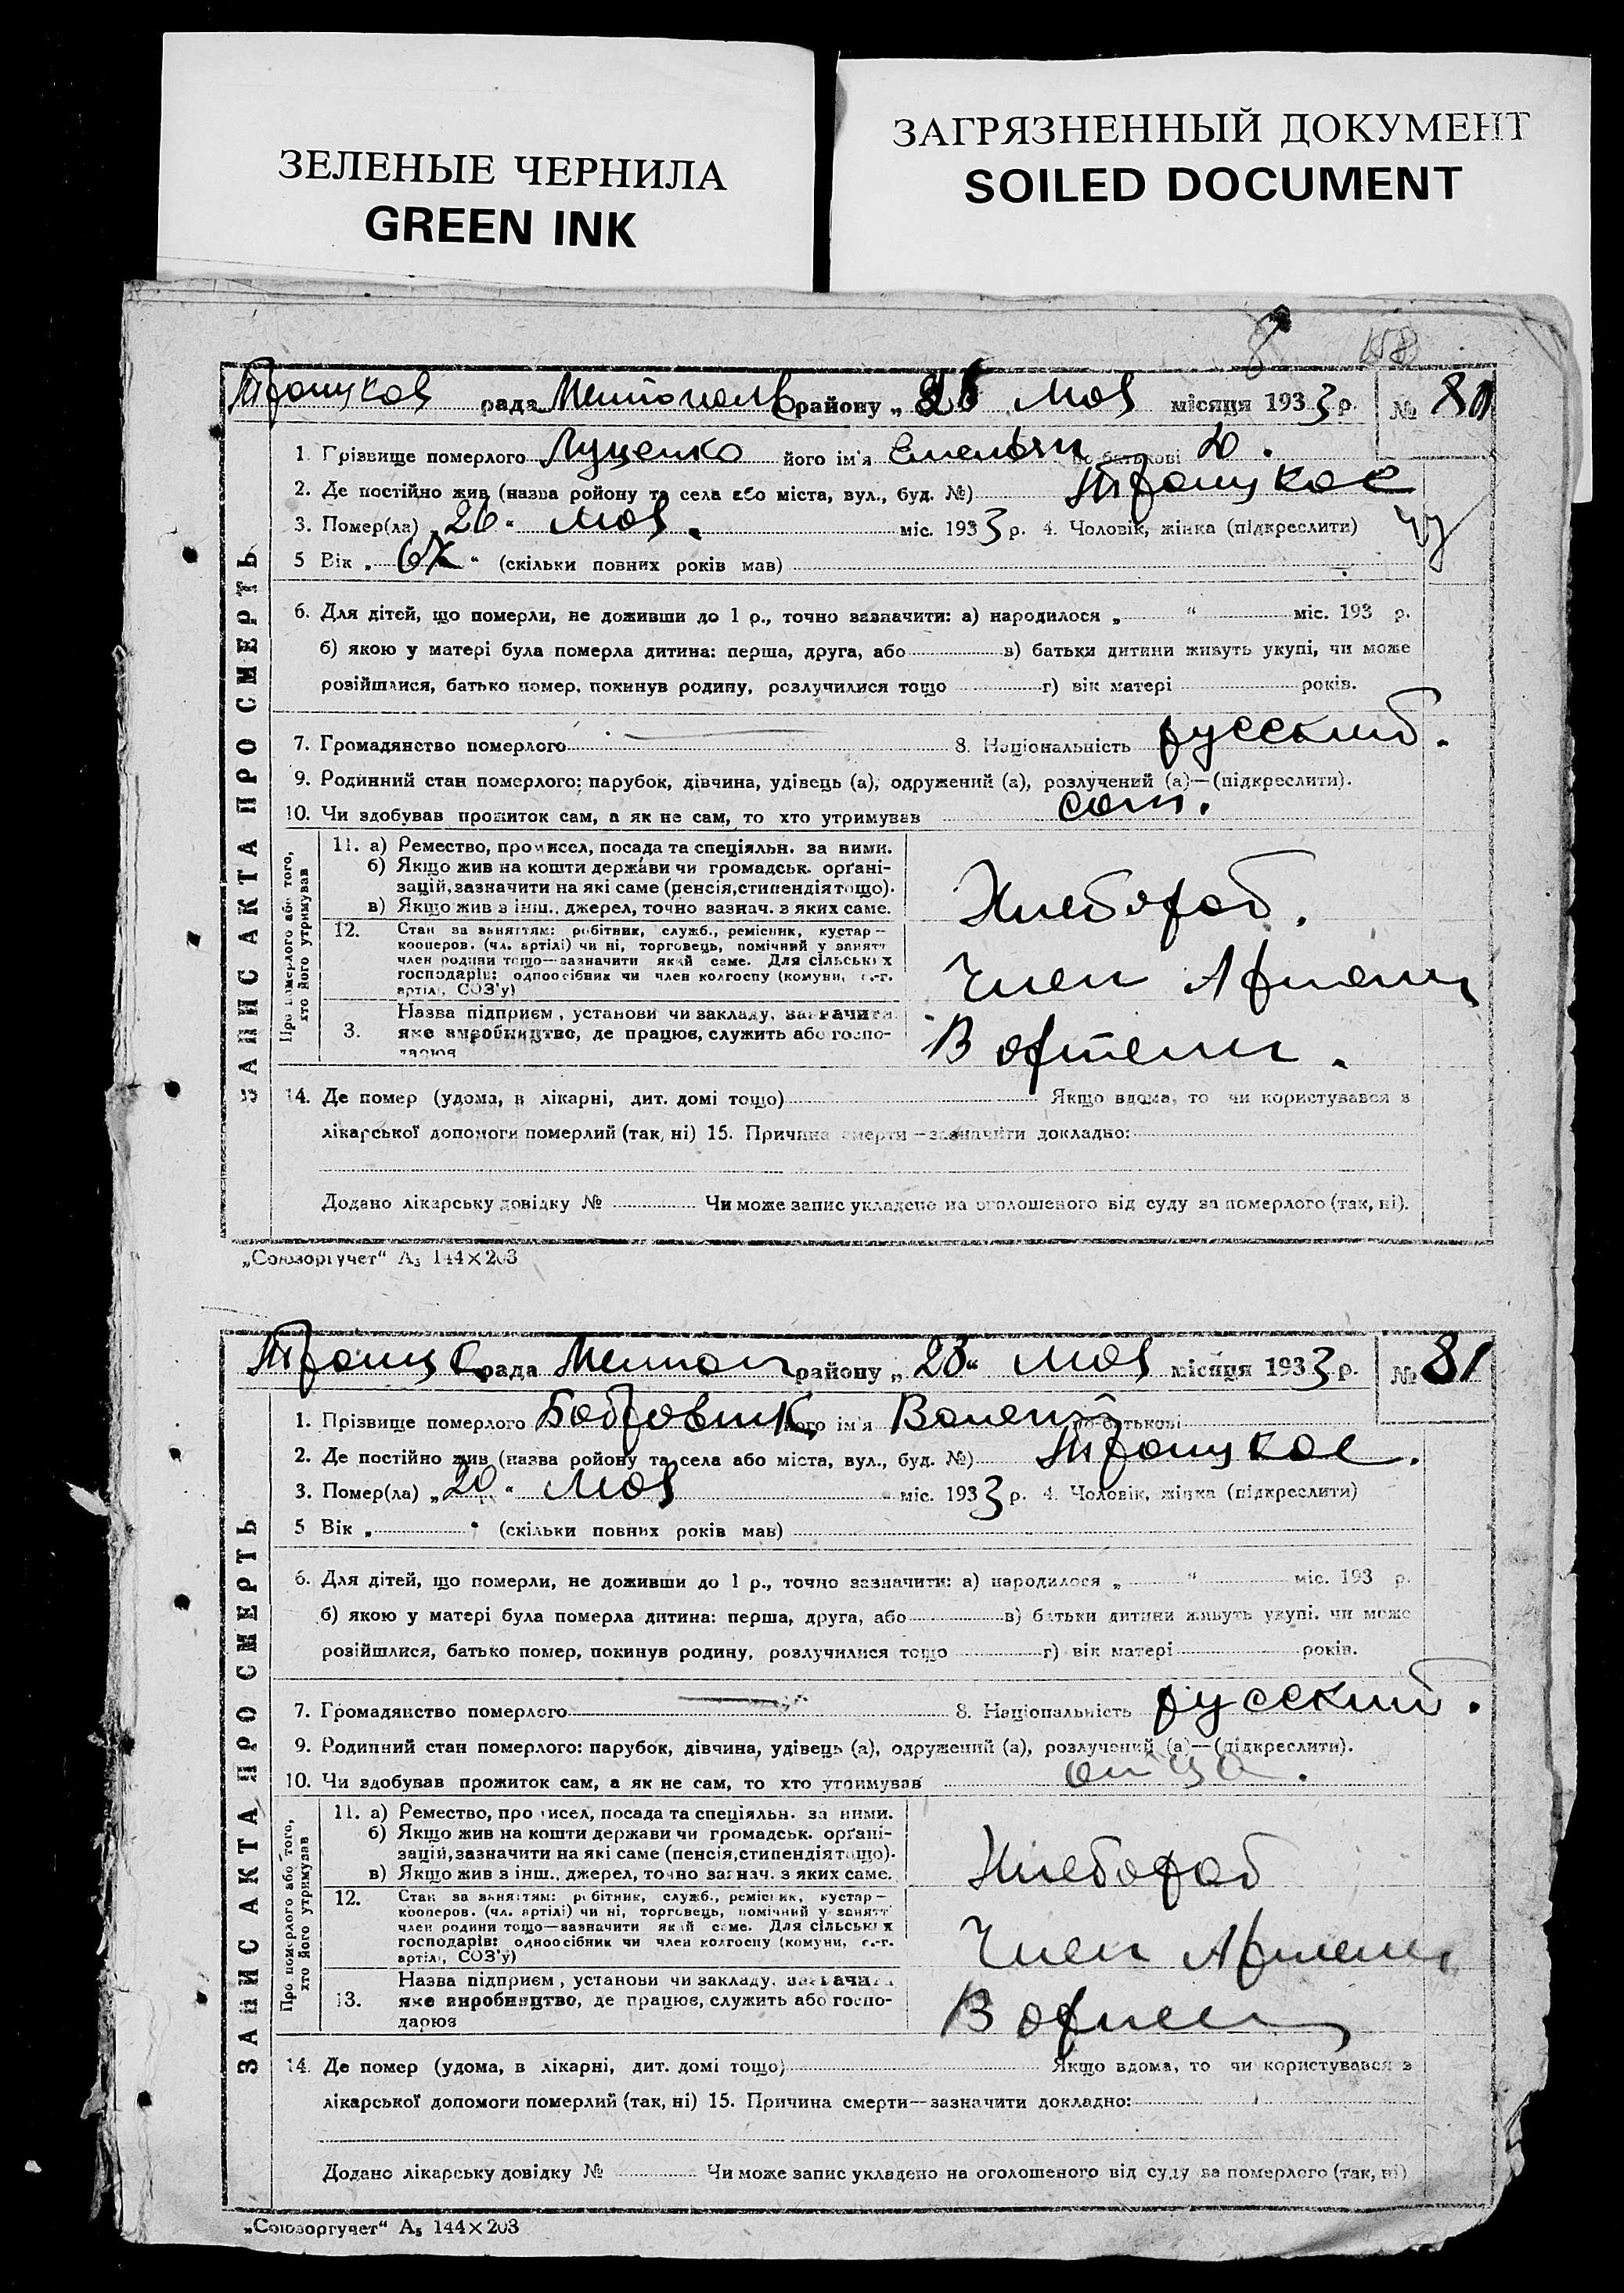 ЗЕЛЕНЫЕ ЧЕРНИЛА
GREEN INK
ЗАГРЯЗНЕННЫЙ ДОКУМЕНТ
SOILED DOCUMENT
158
ЗАПИС АКТА ПРО СМЕРТЬ
рада Мелітополь району „26 Мая місяця 1933 р. № 80
1. Прізвище померлого Луценко його ім'я Емельян по батькові
2. Де постійно жив (назва ройону та села або міста, вул., буд. №) Троицкое
3. Помер(ла) „26" Мая. міс. 1933 р. 4. Чоловік, жінка (підкреслити)
5 Вік „ " (скільки повних років мав)
6. Для дітей, що померли, не доживши до 1 р., точно зазначити: а) народилося „ " міс. 193 р.
б) якою у матері була померла дитина: перша, друга, або в) батьки дитини живуть укупі, чи може
розійшлися, батько помер, покинув родину, розлучилися тощо г) вік матері років.
7. Громадянство померлого 8. Національність русский.
9. Родинний стан померлого: парубок, дівчина, удівець (а), одружений (а), розлучений (а)—(підкреслити).
10. Чи здобував прожиток сам, а як не сам, то хто утримував сам.
Про померлого або того, хто його утримував
11. а) Ремество, промисел, посада та спеціяльн. за ними.
б) Якщо жив на кошти держави чи громадськ. орґані-
зацій, зазначити на які саме (пенсія, стипендія тощо).
в) Якщо жив з інш., джерел, точно зазнач. з яких саме.
Хлебороб.
12. Стан за заняттям: робітник, служб., ремісник, кустар—
кооперов. (чл. артілі) чи ні, торговець, помічний у занятт
член родини тощо—зазначити який саме. Для сільських
господарів: одноосібник чи член колгоспу (комуни, с.-г.
артілі, СОЗ'у)
Член Артели
3. Назва підприєм, установи чи закладу, зазначити
яке виробництво, де працює, служить або госпо-
дарює
В артели.
14. Де помер (удома, в лікарні, дит. домі тощо) Якщо вдома, то чи користувався з
лікарської допомоги померлий (так, ні) 15. Причина смерти—зазначити докладно:
Додано лікарську довідку № Чи може запис укладено на оголошеного від суду за померлого (так, ні).
„Союзоргучет" А5 144×203
ЗАПИС АКТА ПРО СМЕРТЬ
Троицк рада Мелитоп району „28" Мая місяця 1933 р. № 81
1. Прізвище померлого Бобровник його ім'я Валент по батькові
2. Де постійно жив (назва ройону та села або міста, вул., буд. №) Троицкое.
3. Помер(ла) „20" Мая міс. 1933 р. 4. Чоловік, жінка (підкреслити)
5 Вік „ " (скільки повних років мав)
6. Для дітей, що померли, не доживши до 1 р., точно зазначити: а) народилося „ " міс. 193 р.
б) якою у матері була померла дитина: перша, друга, або в) батьки дитини живуть укупі, чи може
розійшлися, батько помер, покинув родину, розлучилися тощо г) вік матері років.
7. Громадянство померлого 8. Національність русский.
9. Родинний стан померлого: парубок, дівчина, удівець (а), одружений (а), розлучений (а)—(підкреслити).
10. Чи здобував прожиток сам, а як не сам, то хто утримував отца.
Про померлого або того, хто його утримував
11. а) Ремество, промисел, посада та спеціяльн. за ними.
б) Якщо жив на кошти держави чи громадськ. орґані-
зацій, зазначити на які саме (пенсія, стипендія тощо).
в) Якщо жив з інш., джерел, точно зазнач. з яких саме.
Хлебороб
12. Стан за заняттям: робітник, служб., ремісник, кустар—
кооперов. (чл. артілі) чи ні, торговець, помічний у занятт
член родини тощо—зазначити який саме. Для сільських
господарів: одноосібник чи член колгоспу (комуни, с.-г.
артілі, СОЗ'у)
Член Артели
13. Назва підприєм, установи чи закладу, зазначити
яке виробництво, де працює, служить або госпо-
дарює
В артели
14. Де помер (удома, в лікарні, дит. домі тощо) Якщо вдома, то чи користувався з
лікарської допомоги померлий (так, ні) 15. Причина смерти—зазначити докладно:
Додано лікарську довідку № Чи може запис укладено на оголошеного від суду за померлого (так, ні)
„Союзоргучет" А5 144×203